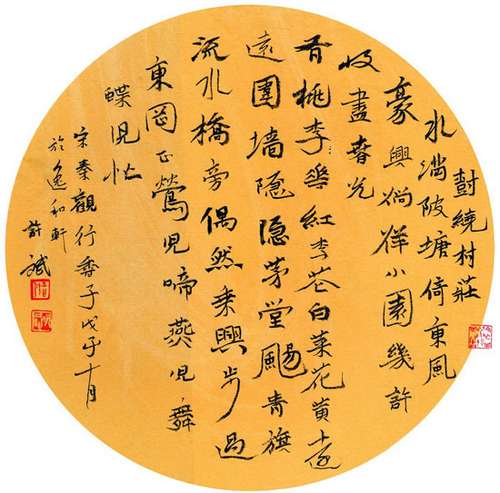 尌繞村莊
水满陂塘倚東風
豪興徜徉小園幾許
收盡春光
有桃李華紅李花白菜花黄遠
遠圍墙隐隐茅堂颺青旗
流水橋旁偶然乘興步過
東岡正鶯児啼燕児舞
蝶児忙
宋秦觀行香子戊子十月
於逸和軒
許斌